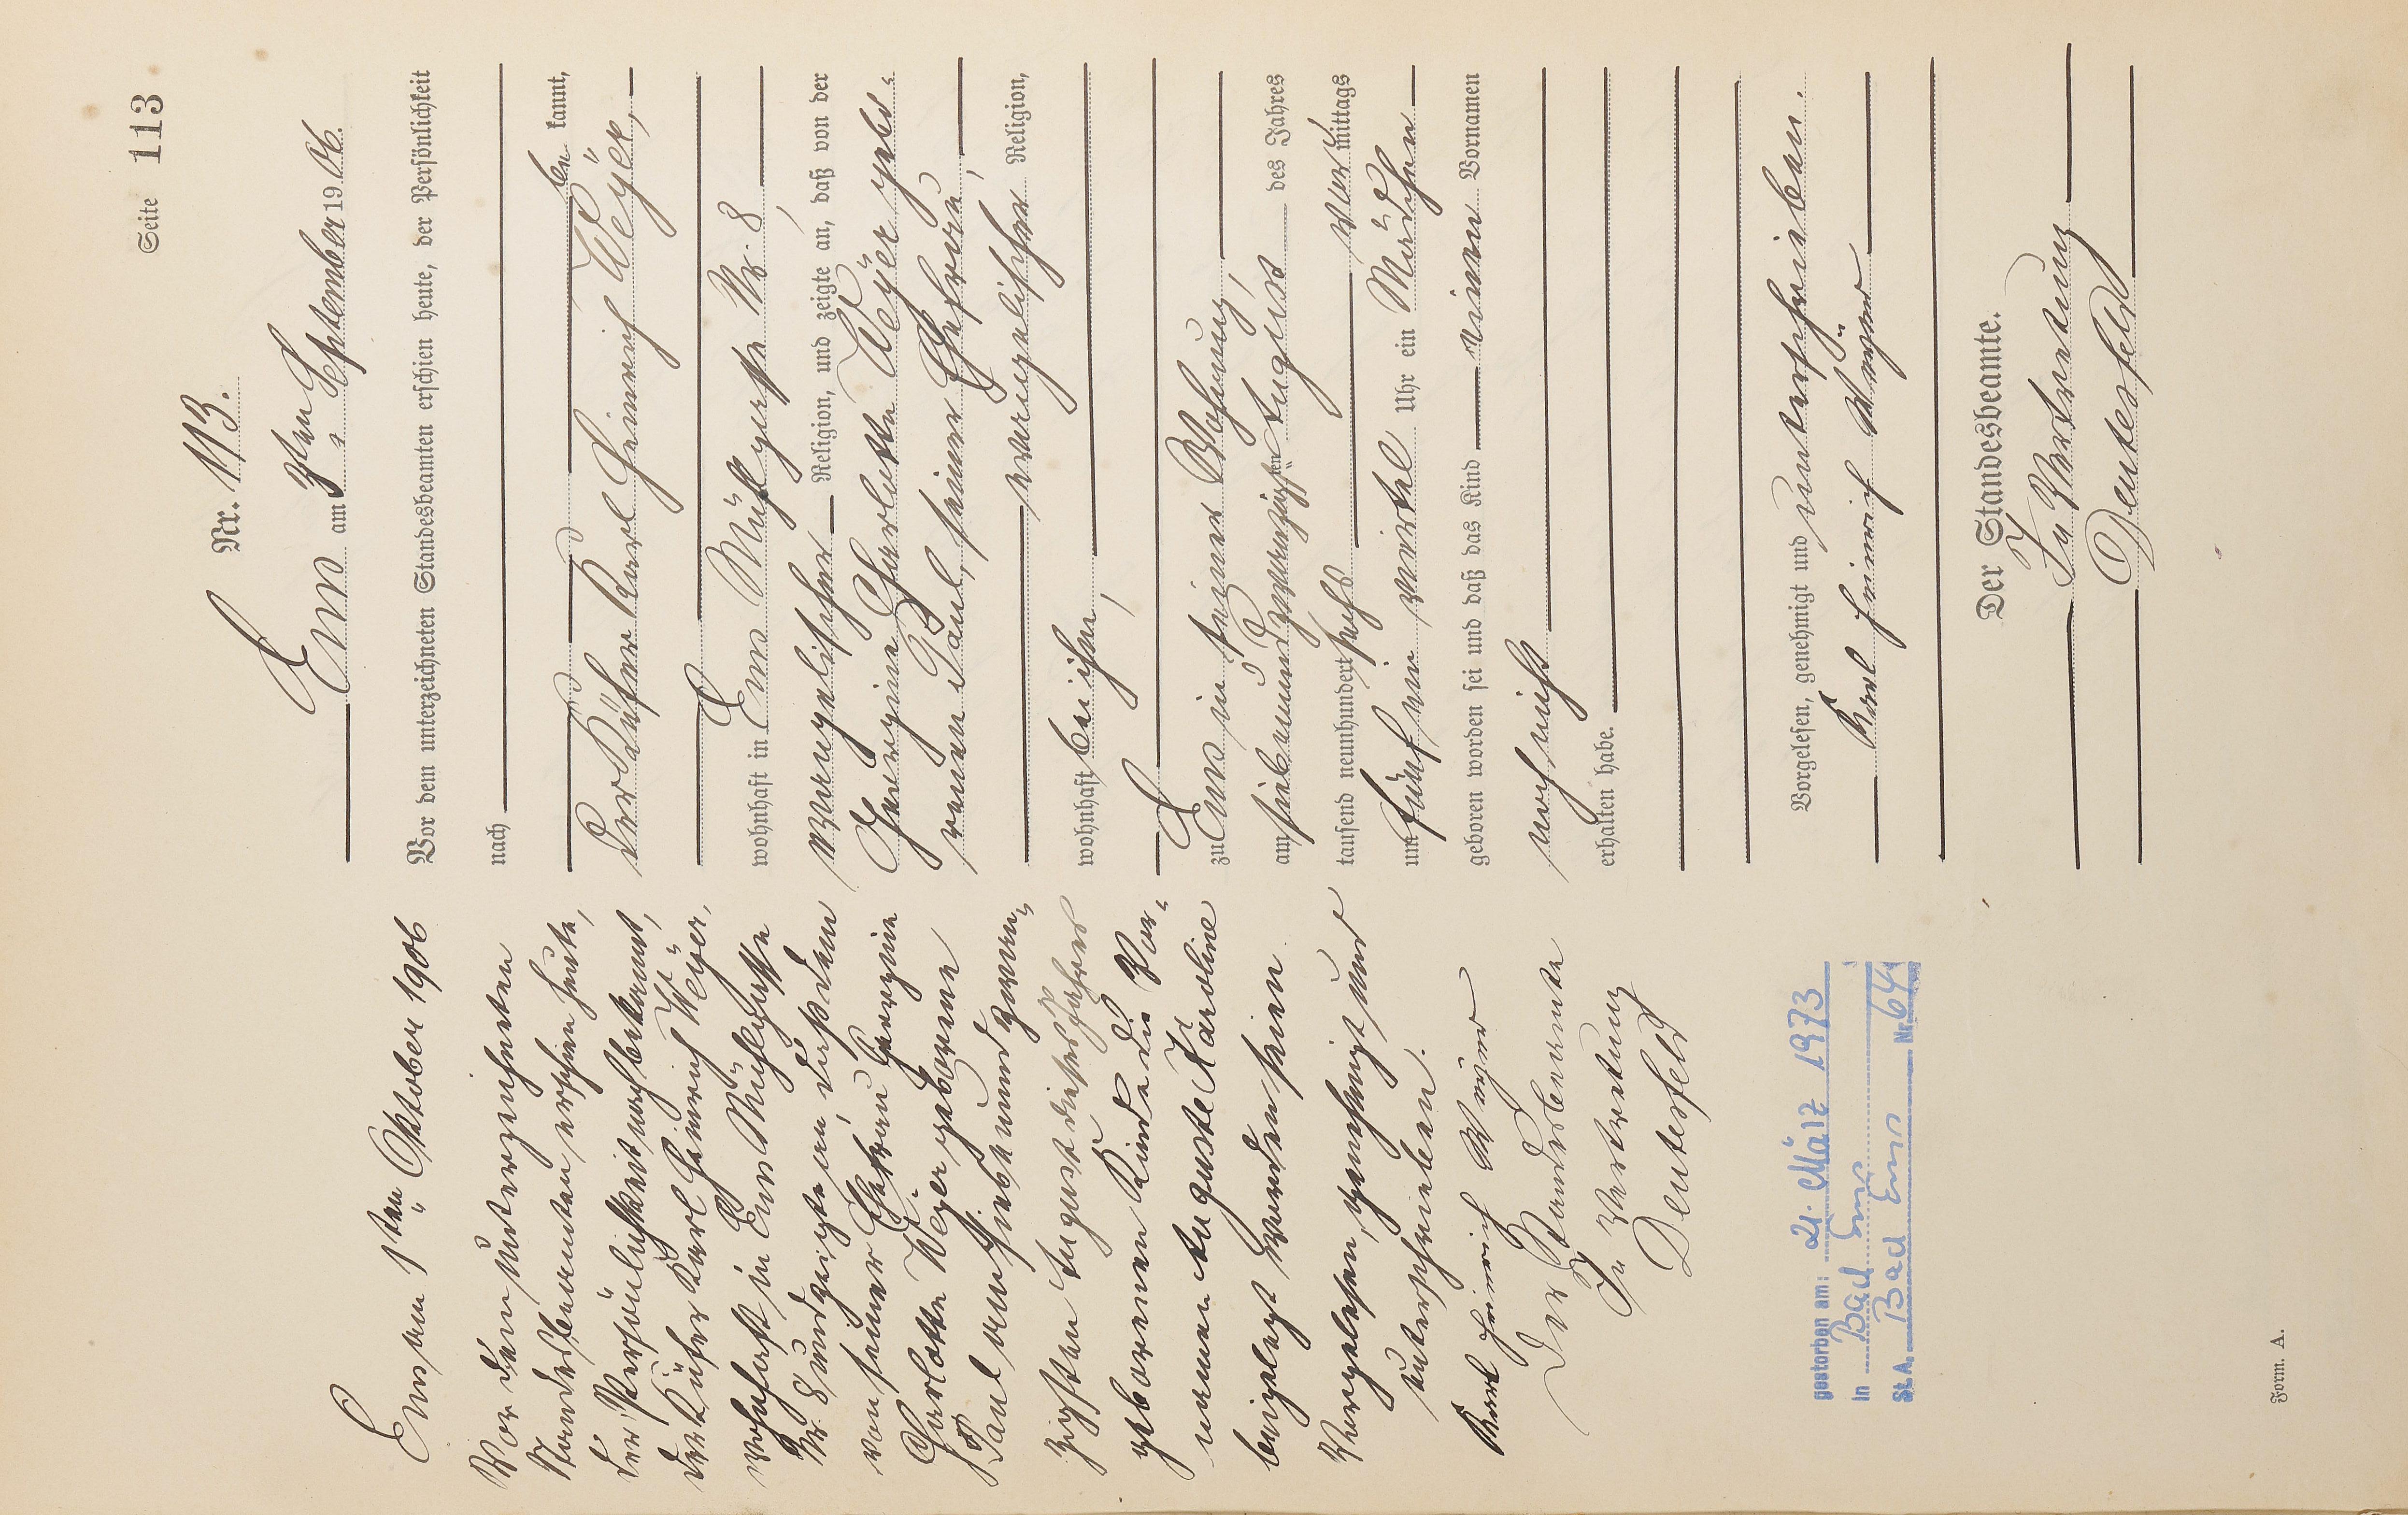 Seite 113
Nr. 113.
Ems am 3ten September 1906.
Vor dem unterzeichneten Standesbeamten erschien heute, der Persönlichkeit
nach
be kannt,
der Küfer Karl Heinrich Weyer,
wohnhaft in Ems Mühlgasse Nr. 8,
evangelischer Religion, und zeigte an, daß von der
Georgine Charlotte Weyer gebo-
renen Paul, seiner Ehefrau,
evangelischer Religion,
wohnhaft bei ihm,
zu Ems in seiner Wohnung,
am siebenundzwanzigsten August des Jahres
tausend neunhundert sechs vormittags
um fünf ein viertel Uhr ein Mädchen
geboren worden sei und daß das Kind einen Vornamen
noch nicht
erhalten habe.
Vorgelesen, genehmigt und unterschrieben.
Karl Heinrich Weyer
Der Standesbeamte.
In Vertretung
Deutesfeld
Ems am 1ten Oktober 1906
Vor dem unterzeichneten
Standesbeamten erschien heute,
der Persönlichkeit nach bekannt,
der Küfer Karl Heinrich Weyer,
wohnhaft in Ems Mühlgasse
Nr. 8 und zeigte an, daß dem
von seiner Ehefrau Georgine
Charlotte Weyer geborene
Paul am siebenundzwan-
zigsten August dieses Jahres
geborenen Kinde die Vor-
namen Auguste Karoline
beigelegt worden seien
Vorgelesen, genehmigt und
unterschrieben.
Karl Heinrich Weyer
Der Standesbeamte
In Vertretung
Deutesfeld
gestorben am: 21. März 1973
in Bad Ems
St.A. Bad Ems Nr. 64
Form. A.